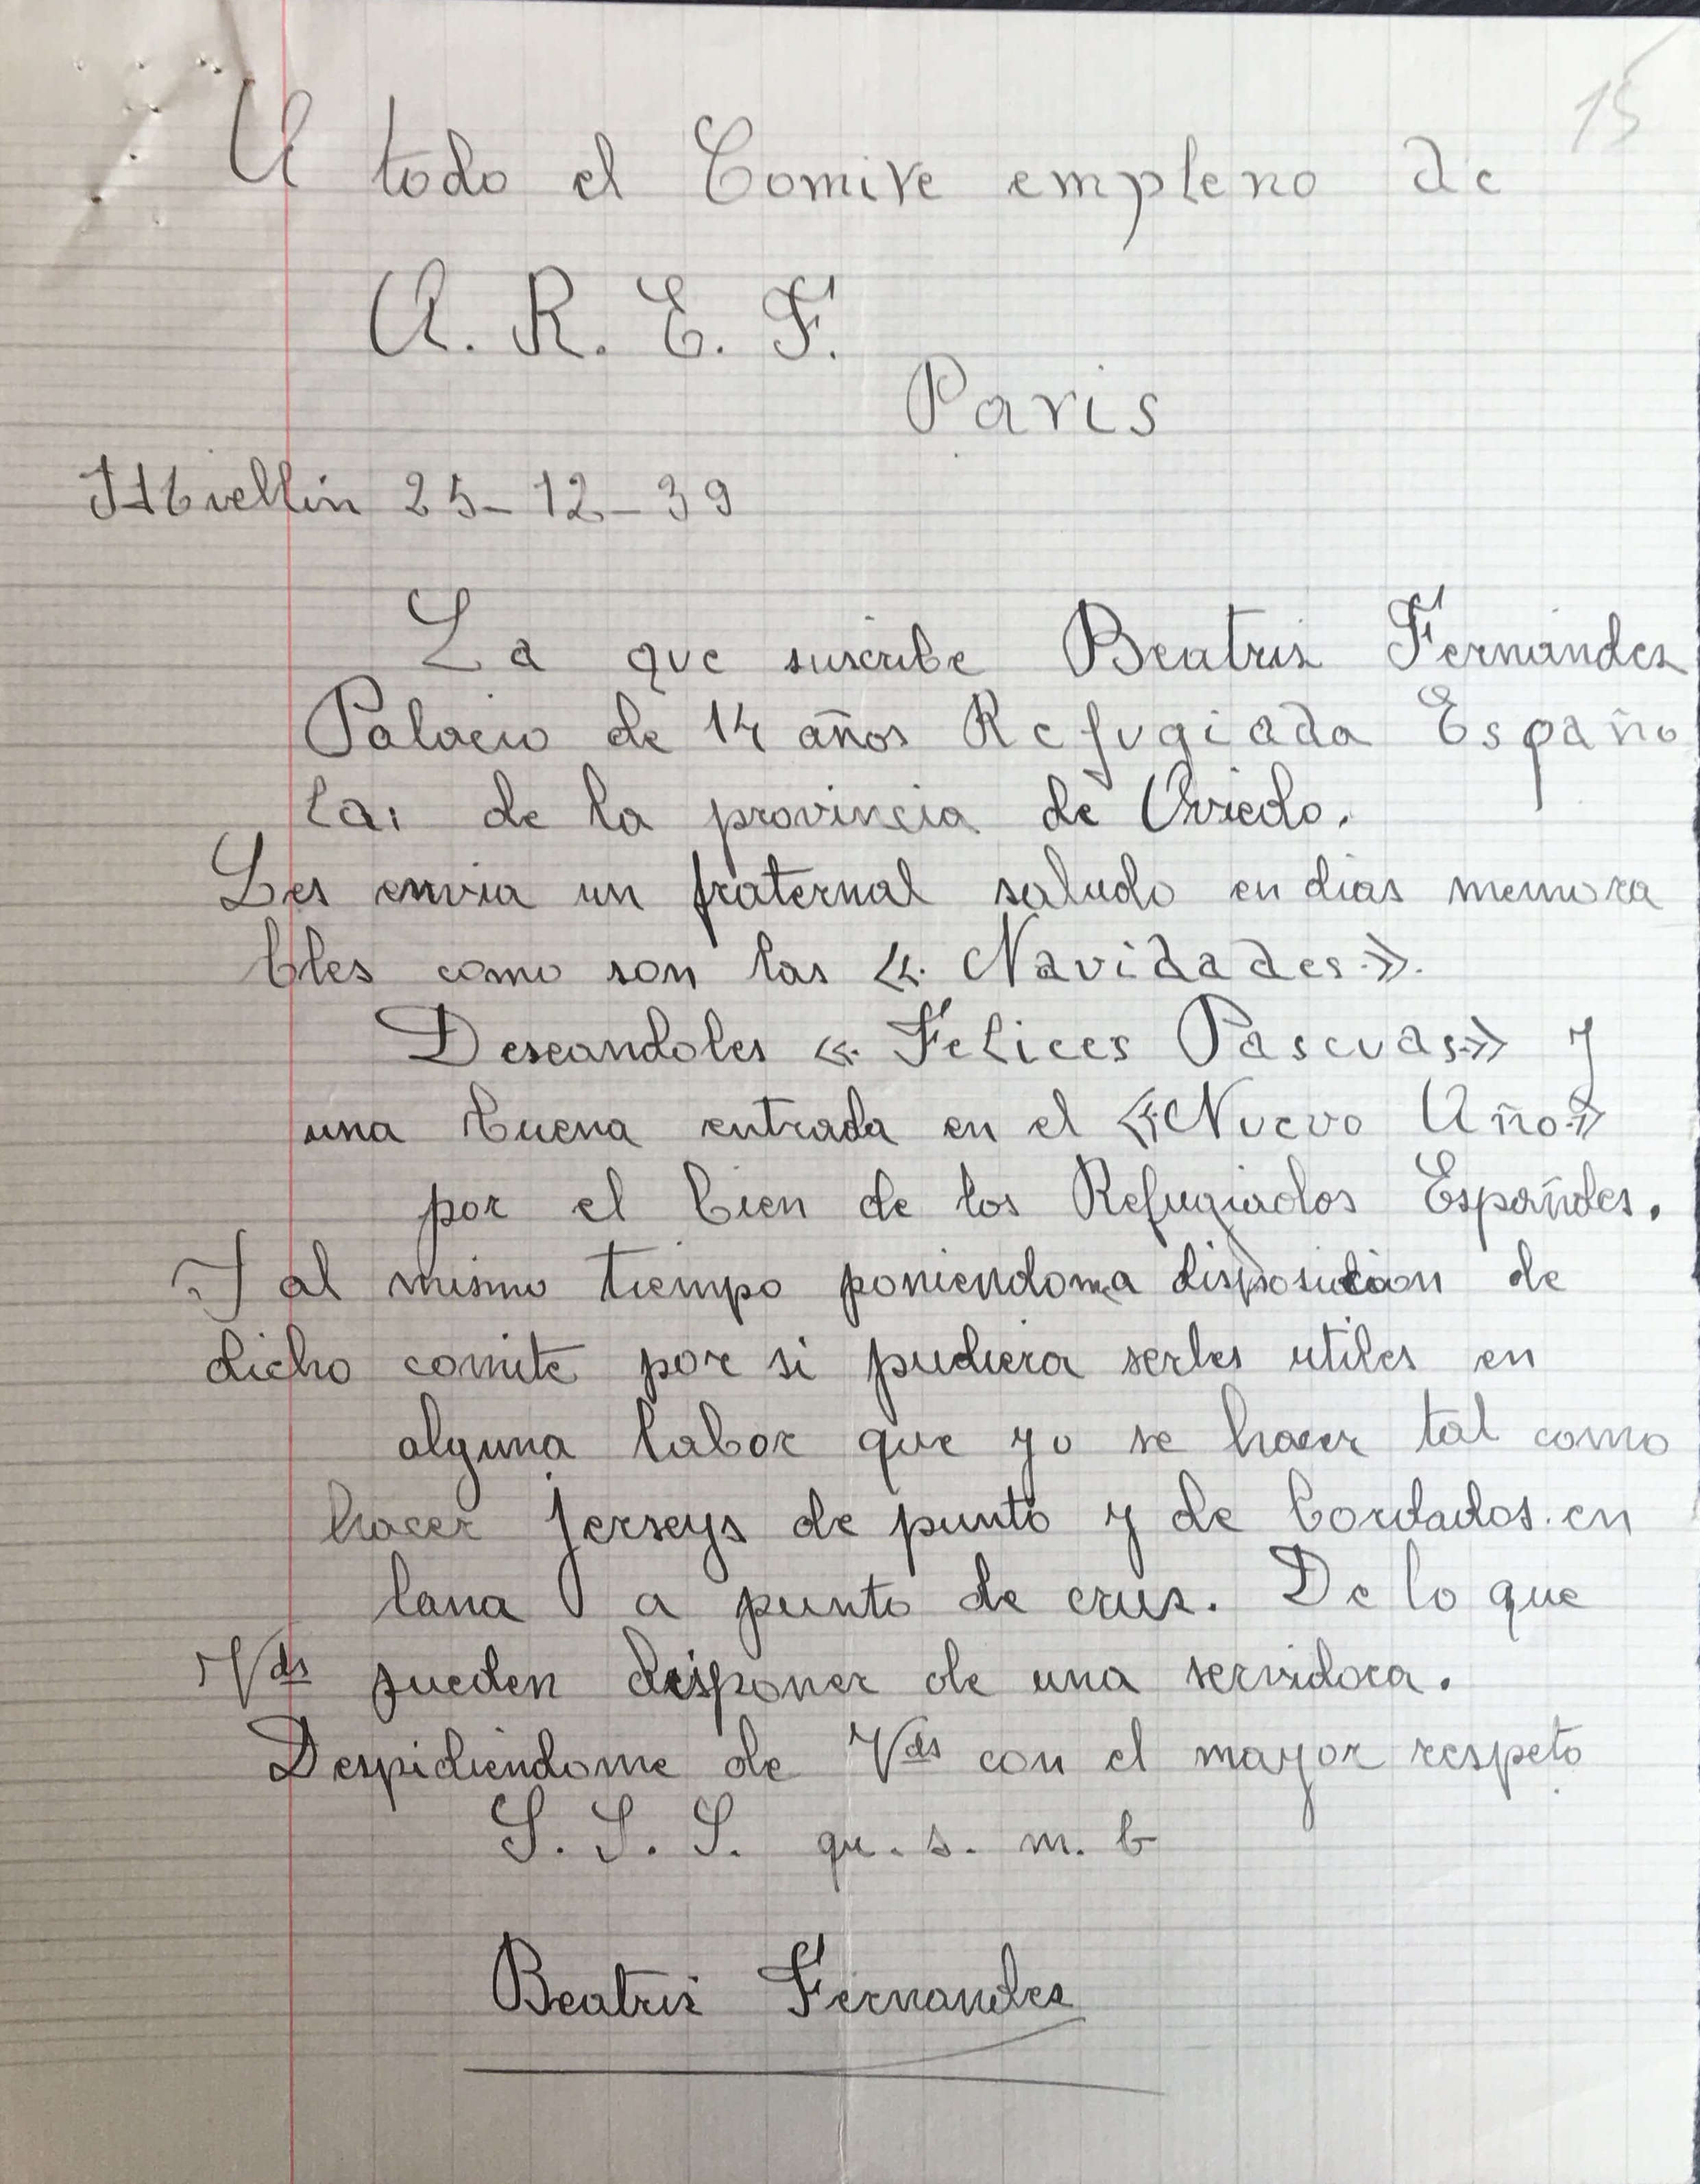 15
A todo el Comite empleno de
A. R. E. F.
Paris
25-12-39
La que suscribe Beatriz Fernández
Palacio de 14 años Refugiada Españo
la, de la provincia de Oviedo.
Les envia un fraternal saludo en dias memora
bles como son las «Navidades».
Deseandoles «Felices Pascuas» y
una buena entrada en el «Nuevo Año»
por el bien de los Refugiados Españoles.
Y al mismo tiempo poniendoma disposición de
dicho comite por si pudiera serles utiles en
alguna labor que yo se hacer tal como
hacer jerseys de punto y de bordados en
lana a punto de cruz. De lo que
Vds pueden disponer de una servidora.
Despidiendome de Vds con el mayor respeto
S. S. S. qu. s. m. b
Beatriz Fernandez